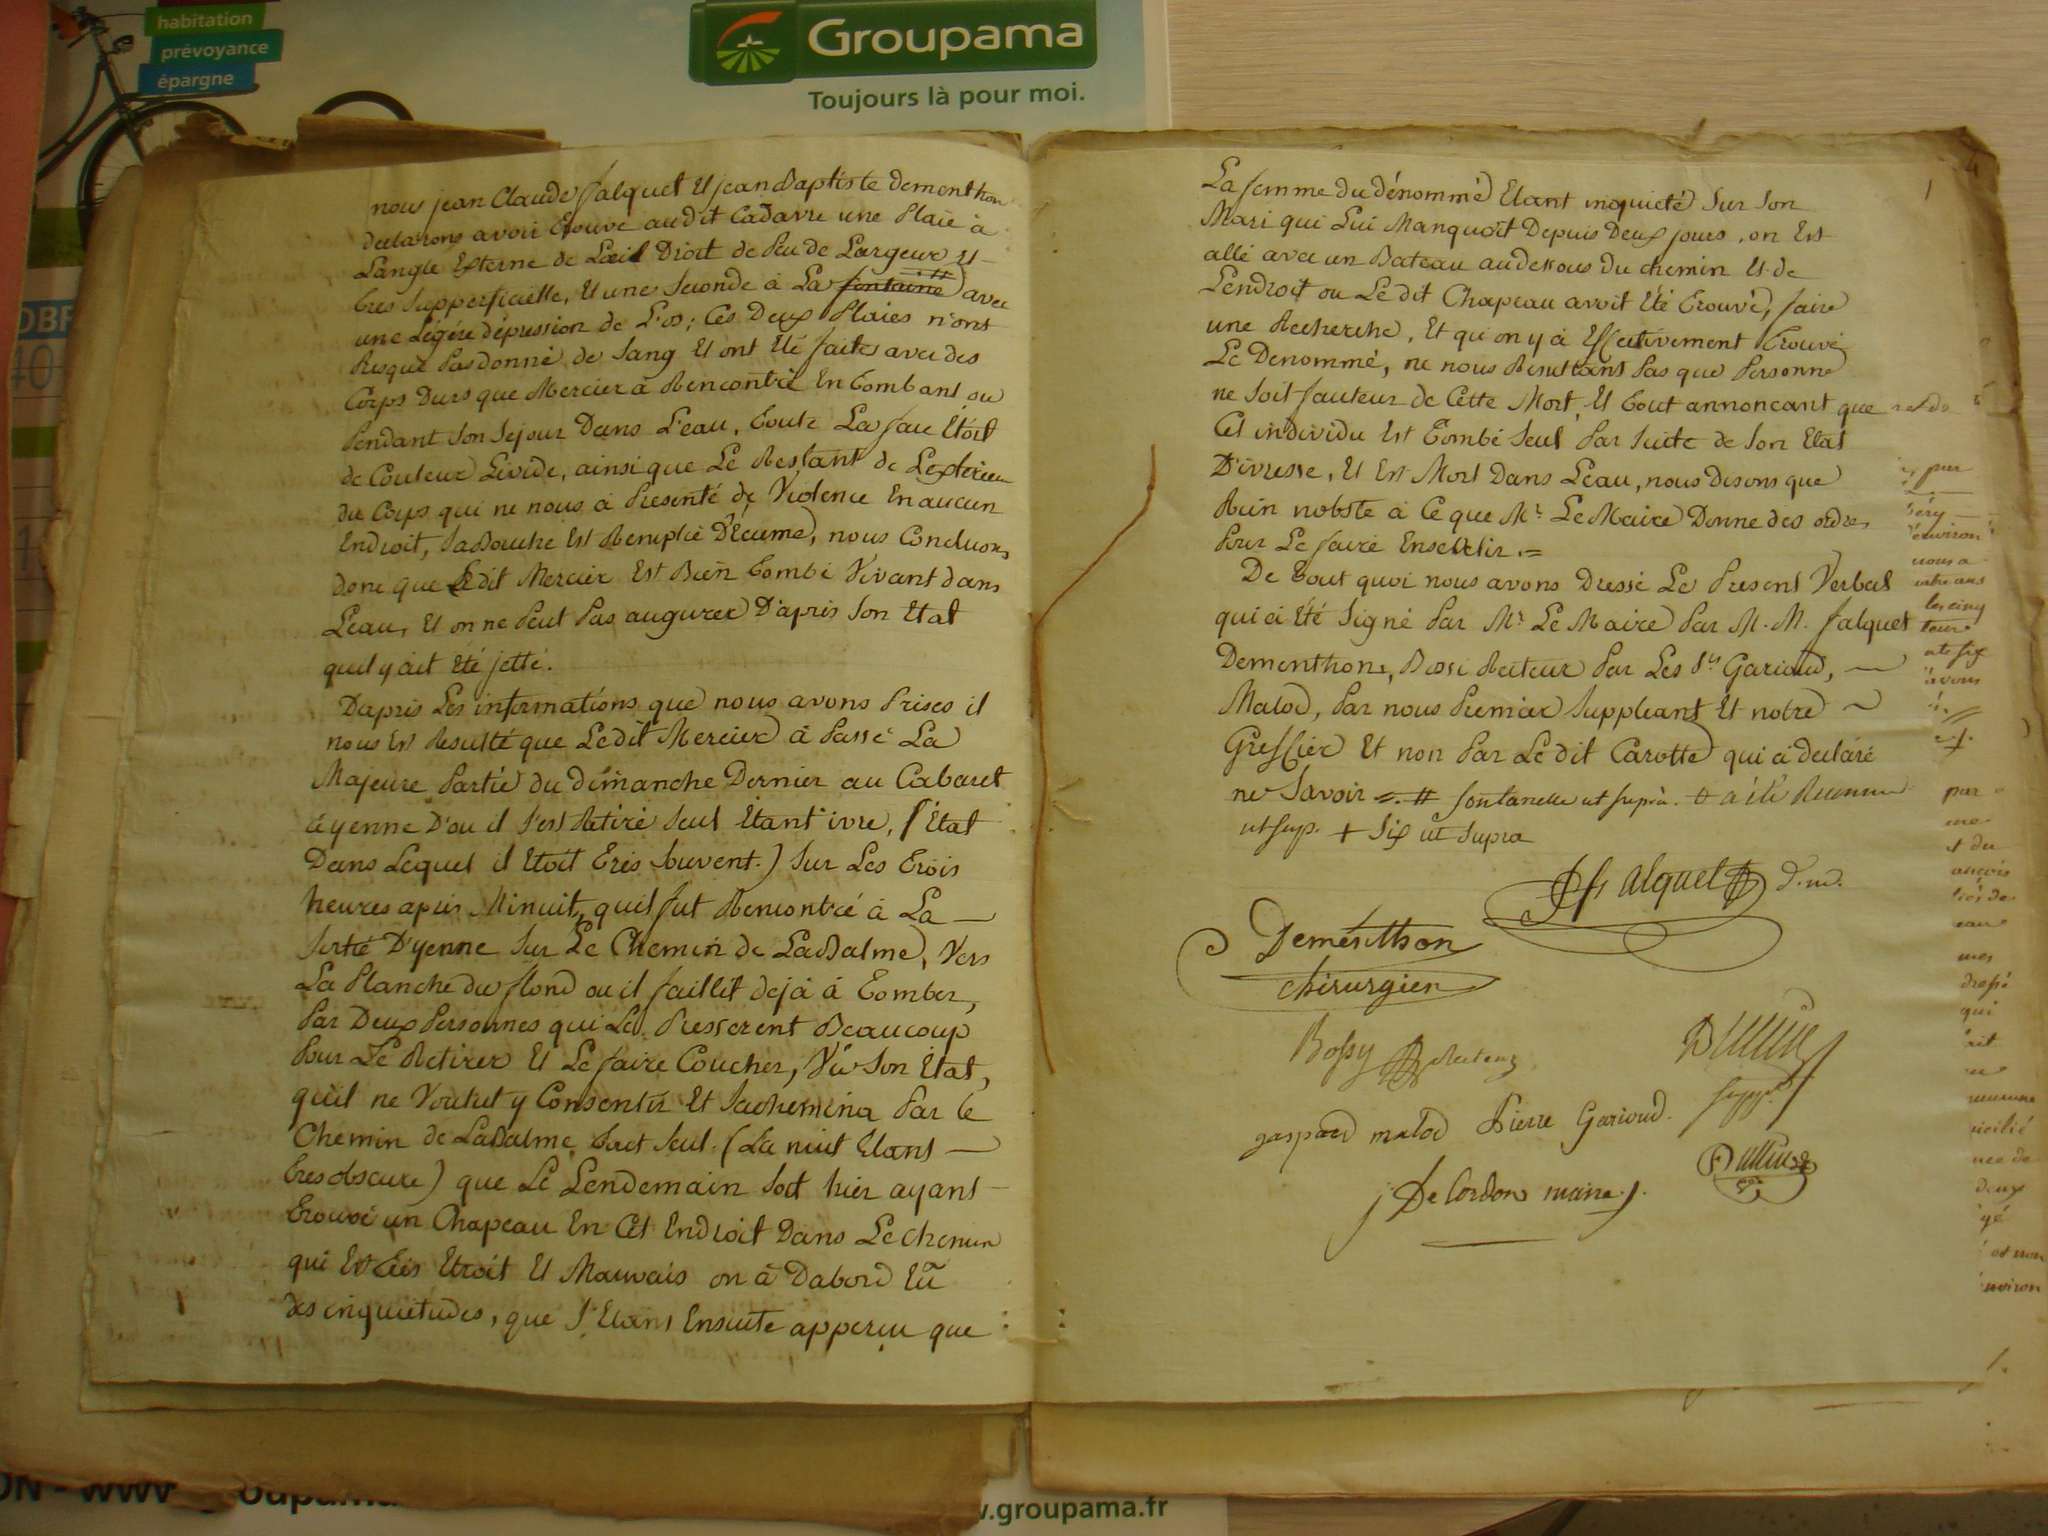 habitation
prévoyance
épargne
Groupama
Toujours là pour moi.
nous jean Claude falquet Et jean Baptiste dementhon
declarons avoir trouvé audit Cadavre une Plaie à
Langle Externe de Lœil Droit de Peu de Largeur Et
tres Supperficielle, Et une Seconde à La fontaine # avec
une Légére dépression de L'os; Ces Deux Plaies n'ont
Presque Pas donné de Sang Et ont Eté faites avec des
Corps Durs que Mercier à Rencontré En tombant ou
Pendant Son Sejour Dans L'eau, toute La face Etoit
de Couleur Livide, ainsi que Le Restant de Lexterieur
du Corps qui ne nous à Presenté de Violence En aucun
Endroit, Sa Bouche Est Remplie D'Ecume, nous Concluons
donc que Ledit Mercier Est Bien tombé Vivant dans
L'eau, Et on ne Peut Pas augurer D'après Son Etat
quil y ait Eté jetté.
Dapris Les informations que nous avons Prises il
nous Est Resulté que Ledit Mercier à Passé La
Majeure Partie du dimanche Dernier au Cabaret
à yenne D'ou il S'est Retiré Seul Etant ivre, (Etat
Dans Lequel il Etoit tres Souvent.) Sur Les trois
heures apris Minuit, quil fut Rencontré à La —
Sortie D'yenne Sur Le Chemin de La Balme, Vers
La Planche du flond ou il faillit dejà à tomber,
Par Deux Personnes qui Le Presserent Beaucoup
Pour Le Retirer Et Le faire Coucher, Vû Son Etat,
qu'il ne Voulut y Consentir Et Sachemina Par le
Chemin de LaBalme tout Seul. (La nuit Etant —
tres obscure) que Le Lendemain Soit hier ayant
trouvé un Chapeau En Cet Endroit Dans Le Chemin
qui Est très Etroit Et Mauvais on à Dabord Eû
des inquietudes, que S'Etant Ensuite apperçu que
La femme du dénommé Etant inquieté Sur Son
Mari qui Lui Manquoit Depuis Deux jours, on Est
allé avec un Bateau audessous du chemin Et de
Lendroit ou Le dit Chapeau avoit Eté trouvé, faire
une Recherche, Et qu'on y à Effectivement trouvé
Le Denommé, ne nous Resultant Pas que Personne
ne Soit fauteur de Cette Mort, Et tout annoncant que
Cet individu Est tombé Seul Par Suite de Son Etat
D'ivresse, Et Est Mort Dans L'eau, nous disons que
Rien nobste à Ce que Mr. Le Maire Donne des ordres
Pour Le faire Ensevelir. =
De tout quoi nous avons Dressé Le Present Verbal
qui à Eté Signé Par Mr. Le Maire Par M. M. falquet
Dementhon, Bossi Recteur Par Les Srs Garioud, —
Malod, Par nous Premier Suppleant Et notre ~
Greffier Et non Par Le dit Carotte qui à déclaré
ne Savoir =. # fontanelle ut suprà. à été Reconnu
ut sup. + Six ut Supra
falquet d. m.
Dementhon
chirurgien
Bossy Recteur
Dullin
supp.
gaspard malod Pierre Garioud.
Dullin
De Cordon maire
par
environ
nous a
les cinq
avons
par
t du
mes
dressé
qui
deux
et non
environ
groupama
.groupama.fr